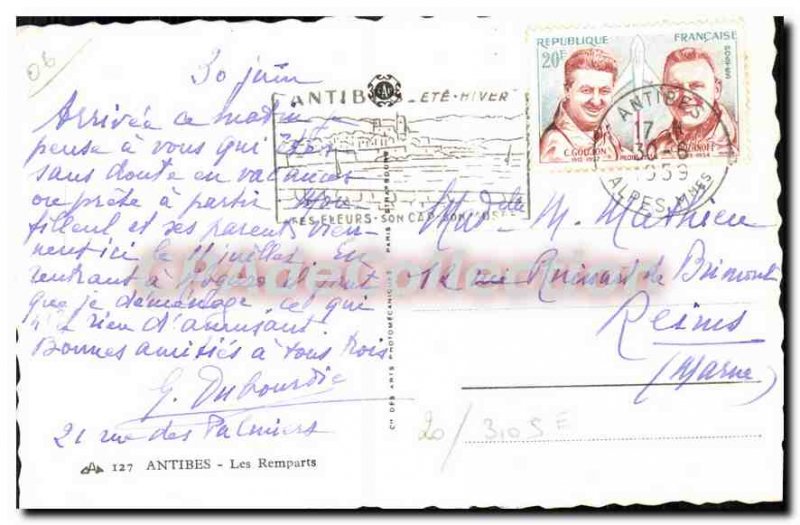 06
30 juin
Arrivée ce matin
pense à vous qui êtes
sans doute en vacances
ou prête à partir Mon
filleul et ses parents vien-
nent ici le 11 juillet. En
rentrant à il faut
que je déménage, ce qui
n'a rien d'amusant.
Bonnes amitiés à tous trois
G. Dubourdie
21 rue des Palmiers
127 ANTIBES - Les Remparts
ANTIBES ÉTÉ-HIVER
SES FLEURS-SON CAP-SON MUSÉE
REPUBLIQUE FRANÇAISE
20F
POSTES
C. GOUJON
1912-1957
ANTIBES
17 H
30-6
1959
ALPES MMES
Cie DES ARTS PHOTOMÉCANIQUES PARIS STRASBOURG
Mad elle M. Mathieu
12 rue Ruinart de Brimont
Reims
(Marne)
20/ 3105E
CPAdeCollection